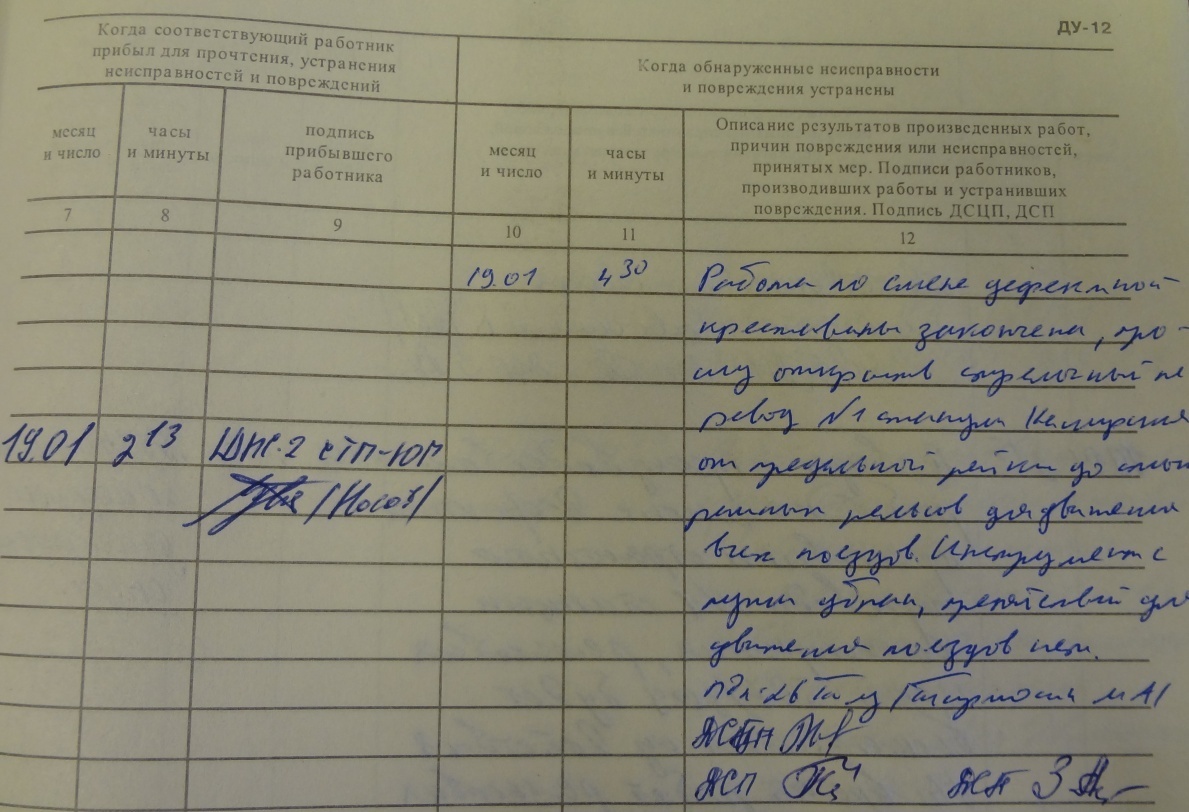 ДУ-12
Когда соответствующий работник
прибыл для прочтения, устранения
неисправностей и повреждений
Когда обнаруженные неисправности
и повреждения устранены
месяц
и число
часы
и минуты
подпись
прибывшего
работника
месяц
и число
часы
и минуты
Описание результатов произведенных работ,
причин повреждения или неисправностей,
принятых мер. Подписи работников,
производивших работы и устранивших
повреждения. Подпись ДСЦП, ДСП
7 8 9 10 11 12
19.01 4 30 Работа по смене дефектной
крестовины закончена, про-
шу открыть стрелочный пе
ревод №1 станции Каширская
19.01 2 13 ШНС-2 СТП-ЮП
от предельной рейки до стык
/Носов/
рамных рельсов для движения
всех поездов. Инструмент с
пути убран, препятствий для
движения поездов нет.
ДСЦП
ДСП ДСП